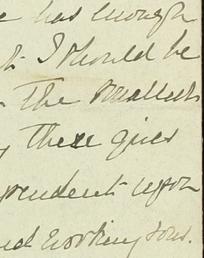 has enough
I should be
The smallest
these gives
pendent upon
working sons.